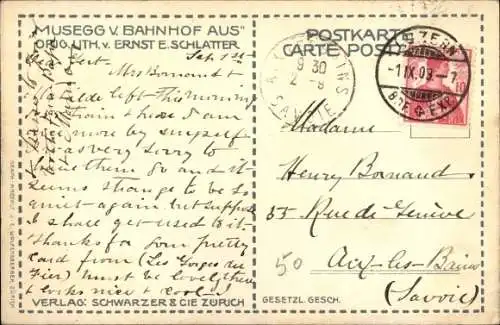 "MUSEGG V. BAHNHOF AUS"
ORIG. LITH. v. ERNST E. SCHLATTER
POSTKARTE
CARTE POSTALE
Sep. 1st
Mrs Bornand &
left this morning
train & here I am
more by myself
was very sorry to
have them go and it
seems strange to be so
quiet again but suppose
I shall get used to it.
thanks for your pretty
card from (Les Gorges du
Fier) must be lovely there
looks nice & cool
LUZERN
-1.IX.09.-7
BRF. EXP.
9 30
2 -9
SAVOIE
10
Madame
Henry Bornand
33 Rue de Genève
Aix-les-Bains
(Savoie)
50
VERLAG: SCHWARZER & CIE ZÜRICH
GESETZL. GESCH.